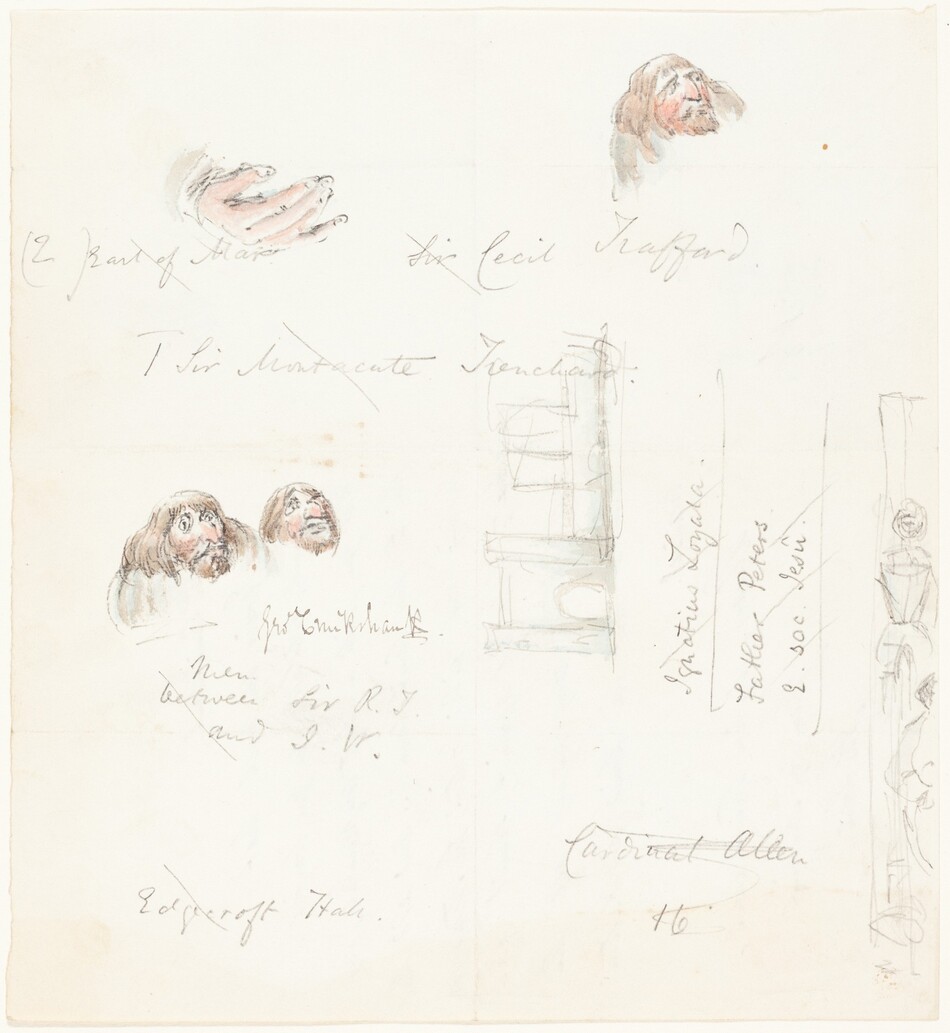 (2 Earl of Mar
Sir Cecil Trafford.
T Sir Montacute Trenchard.
Ignatius Loyala.
Father Peters
E. soc. Jesu.
Geo Cruikshank.
Men
between Sir R. T.
and I. W.
Cardinal Allen
16
Edgecroft Hall.